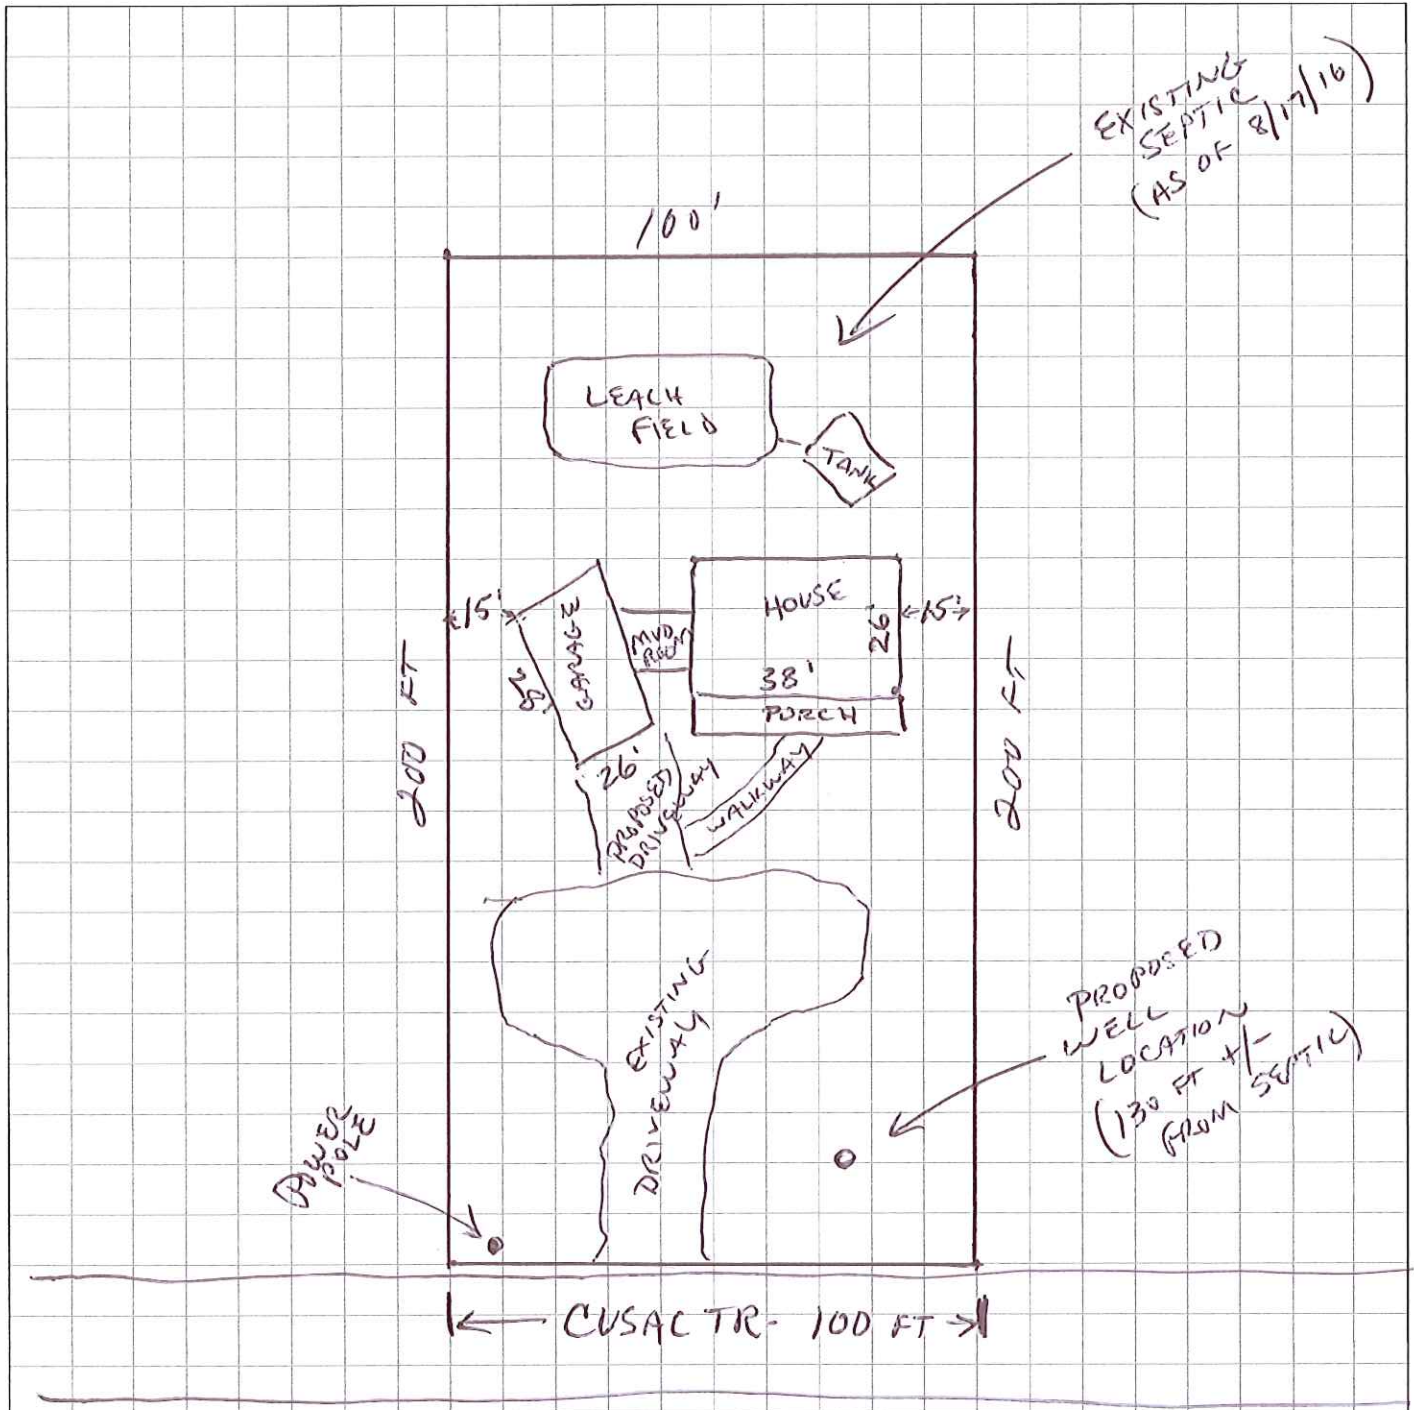 EXISTING
SEPTIC
(AS OF 8/17/16)
100'
LEACH
FIELD
TANK
15'
GARAGE
26'
MUD
HOUSE
26'
15'
38'
PORCH
200 FT
200 FT
PROPOSED
DRIVEWAY
WALKWAY
EXISTING
DRIVEWAY
PROPOSED
WELL
LOCATION
(130 FT +/-
FROM SEPTIC)
POWER
POLE
CUSAC TR- 100 FT